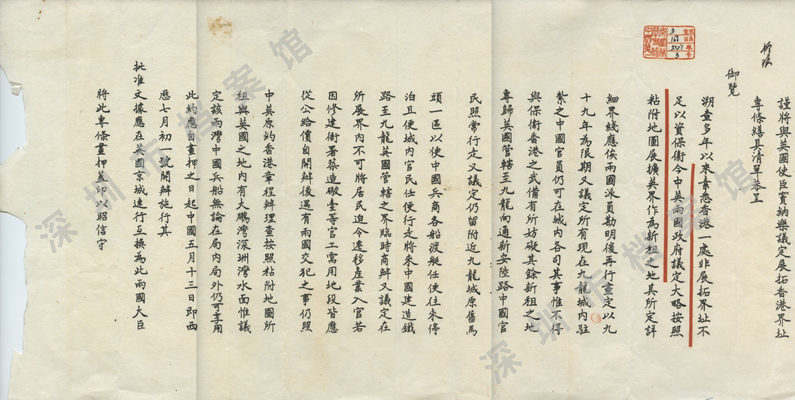 謹將與英國使臣竇納樂議定展拓香港界址
專條繕具清單恭呈
御覽
溯查多年以來素悉香港一處非展拓界址不
足以資保衛今中英兩國政府議定大略按照
粘附地圖展擴英界作為新租之地其所定詳
細界綫應俟兩國派員勘明後再行畫定以九
十九年為限期又議定所有現在九龍城內駐
紮之中國官員仍可在城內各司其事惟不得
與保衛香港之武備有所妨礙其餘新租之地
專歸英國管轄至九龍向通新安陸路中國官
民照常行走又議定仍留附近九龍城原舊馬
頭一區以便中國兵商各船渡艇任便往來停
泊且便城內官民任便行走將來中國建造鐵
路至九龍英國管轄之界臨時商辦又議定在
所展界內不可將居民迫令遷移產業入官若
因修建衙署築造礮臺等官工需用地段皆應
從公給價自開辦後遇有兩國交犯之事仍照
中英原約香港章程辦理查按照粘附地圖所
租與英國之地內有大鵬灣深圳灣水面惟議
定該兩灣中國兵船無論在局內局外仍可享用
此約應自畫押之日起中國五月十三日即西
歷七月初一號開辦施行其
批准文據應在英國京城速行互換為此兩國大臣
將此專條畫押蓋印以昭信守
深圳市檔案館
深圳市檔案館